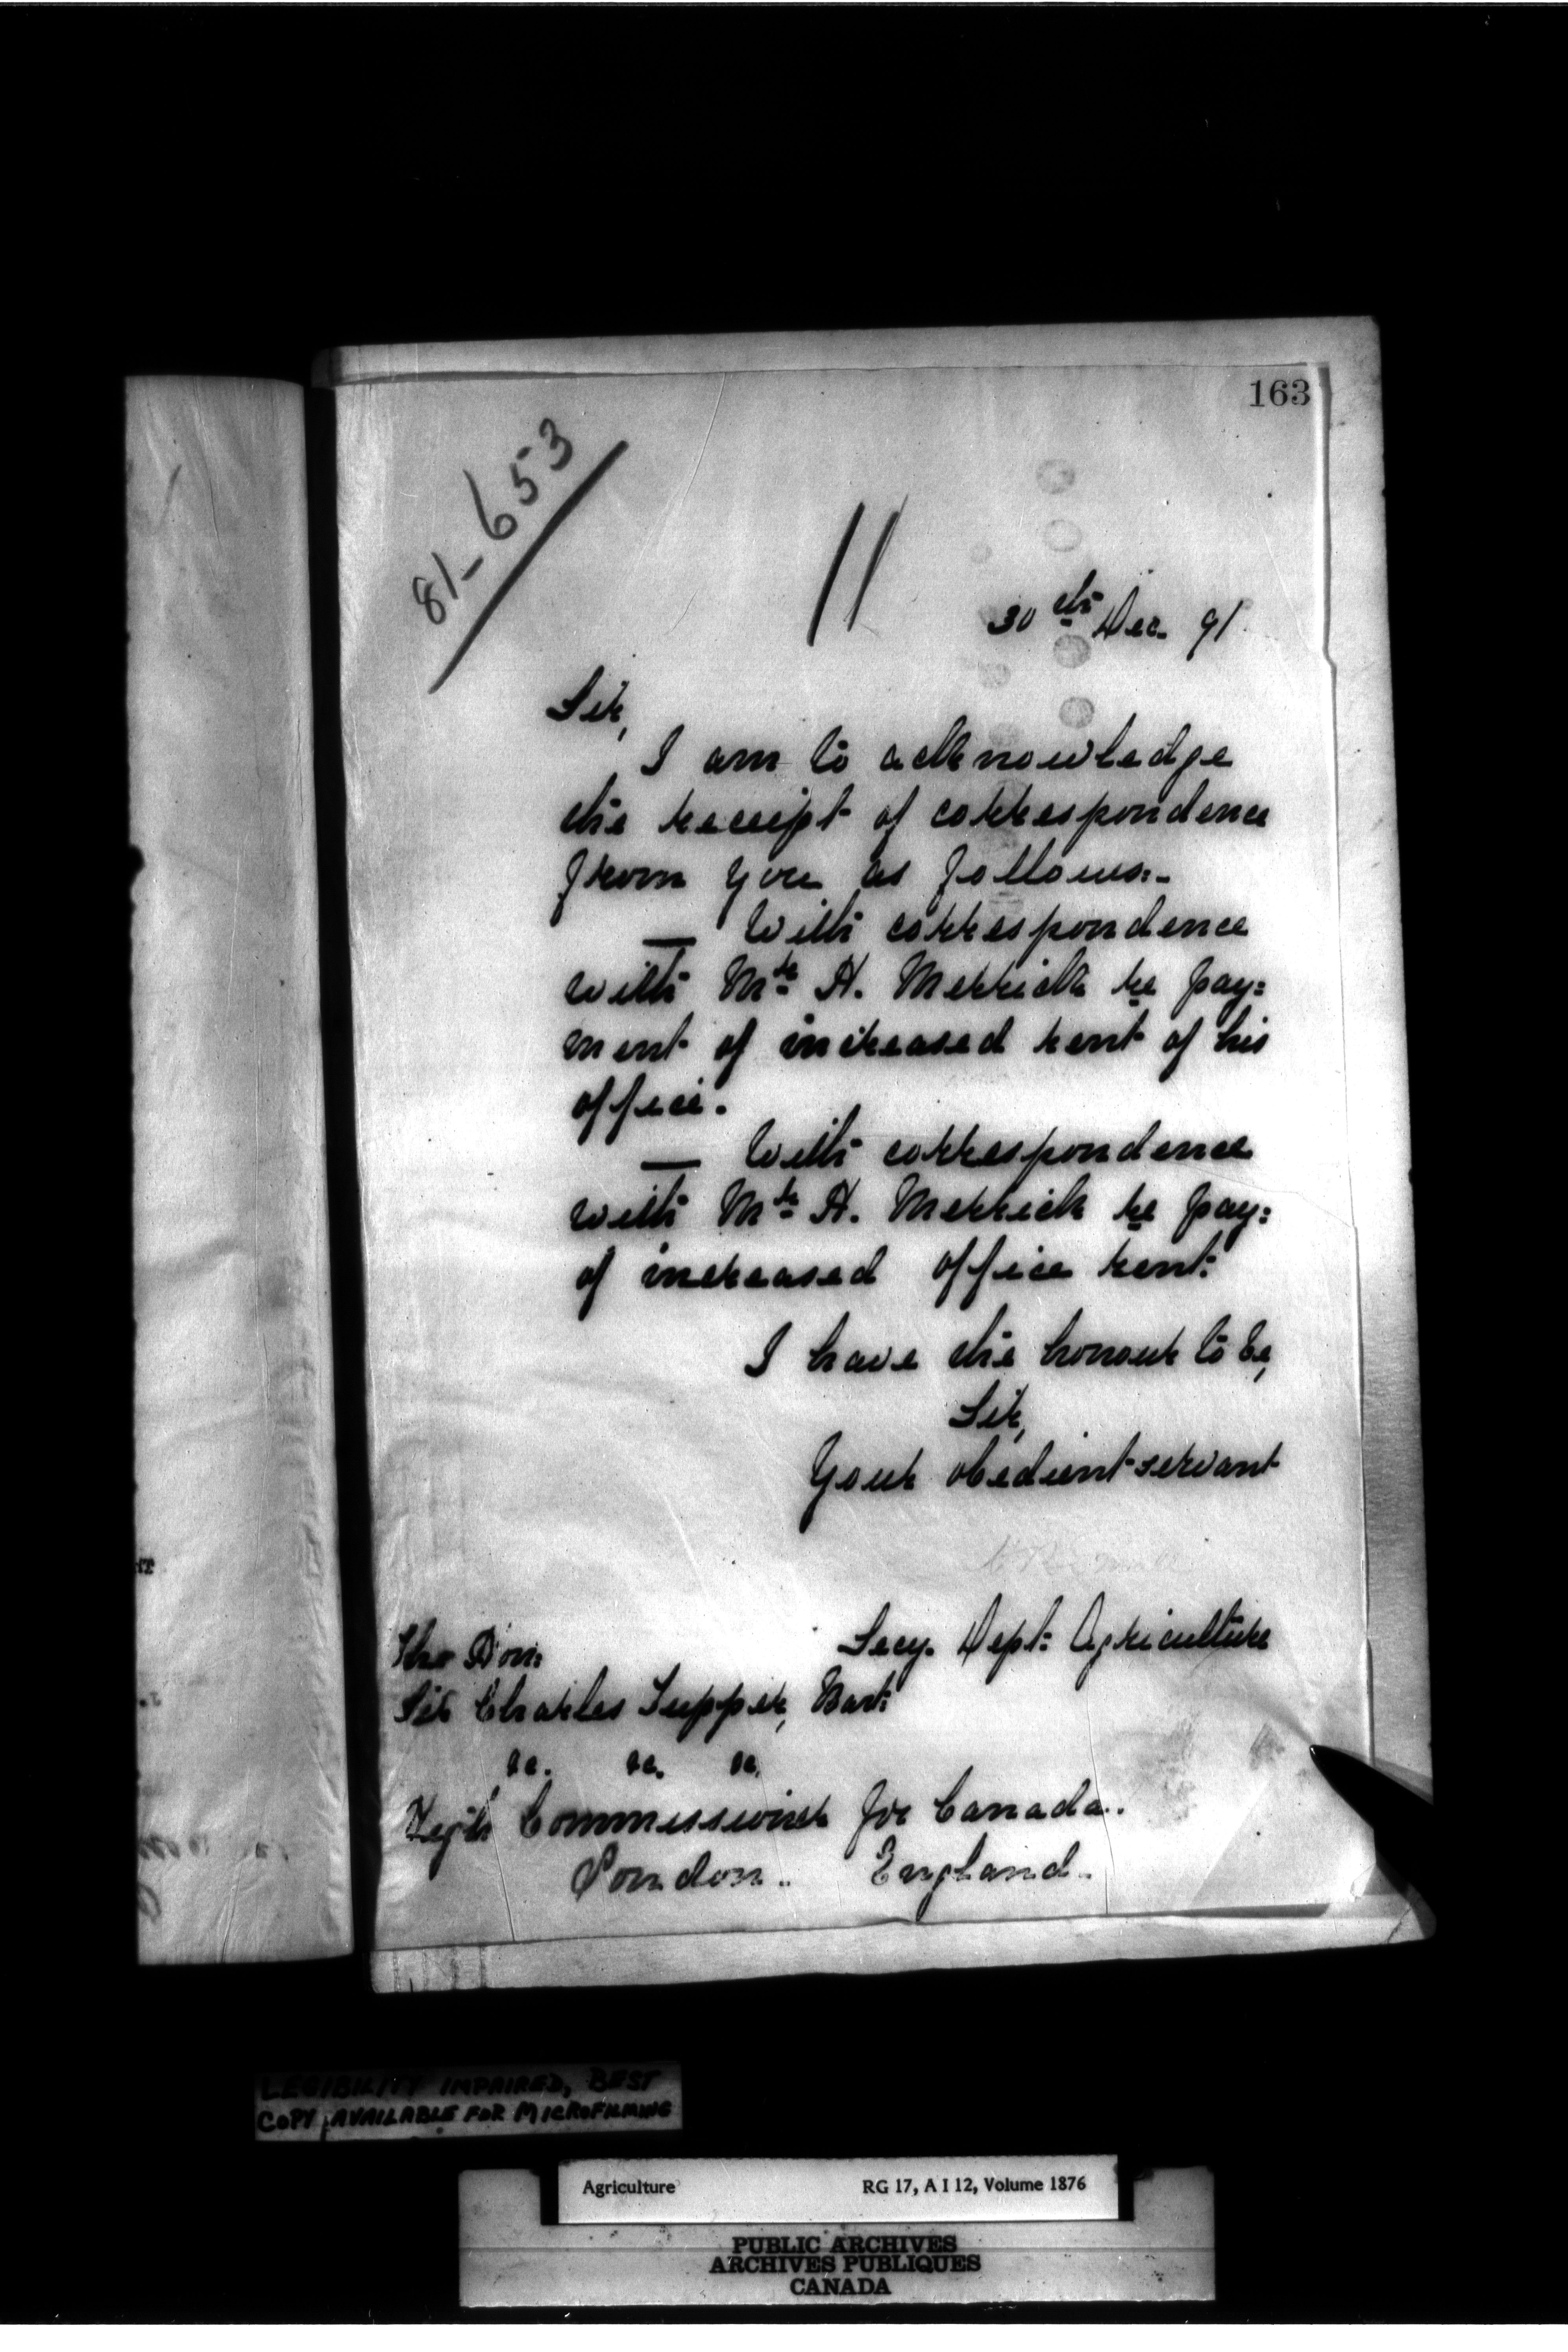 163
81-653
11
30th Dec. 91
Sir,
I am to acknowledge
the receipt of correspondence
from you as follows:-
— With correspondence
with Mr H. Merrick re pay=
ment of increased rent of his
office.
— With correspondence
with Mr H. Merrick re pay:
of increased office rent:
I have the honour to be,
Sir,
Your obedient servant
Secy. Dept: Agriculture
The Hon:
Sir Charles Tupper, Bart:
&c. &c. &c.
High Commissioner for Canada.
London. England.
LEGIBILITY IMPAIRED, BEST
COPY AVAILABLE FOR MICROFILMING
Agriculture RG 17, A I 12, Volume 1876
PUBLIC ARCHIVES
ARCHIVES PUBLIQUES
CANADA